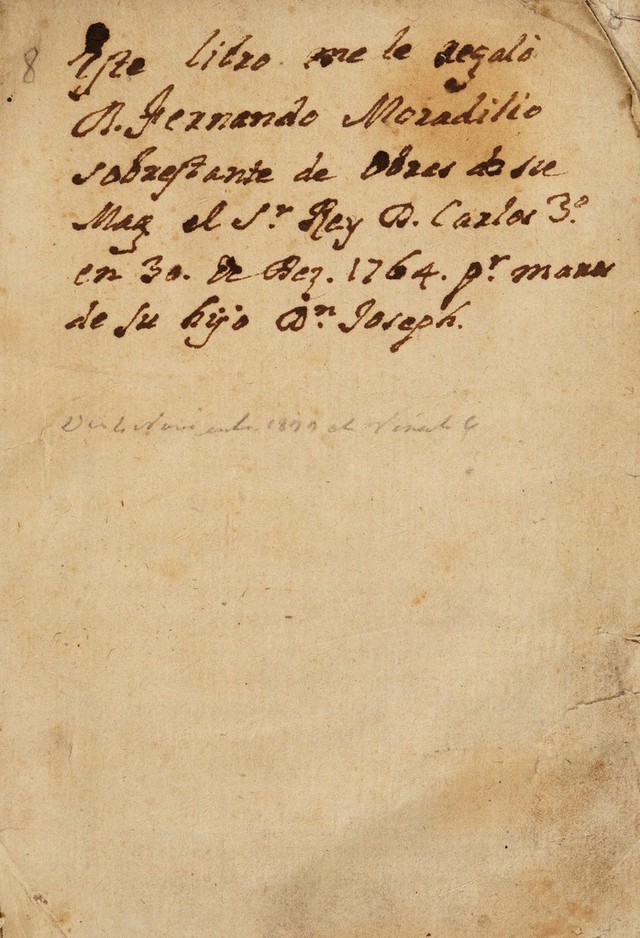 8
Este libro me le regaló
D. Fernando Moradillo
sobrestante de Obras de su
Mag el Sr. Rey D. Carlos 3º
en 30. de Dez. 1764. pr. manos
de su hijo Dn. Joseph.